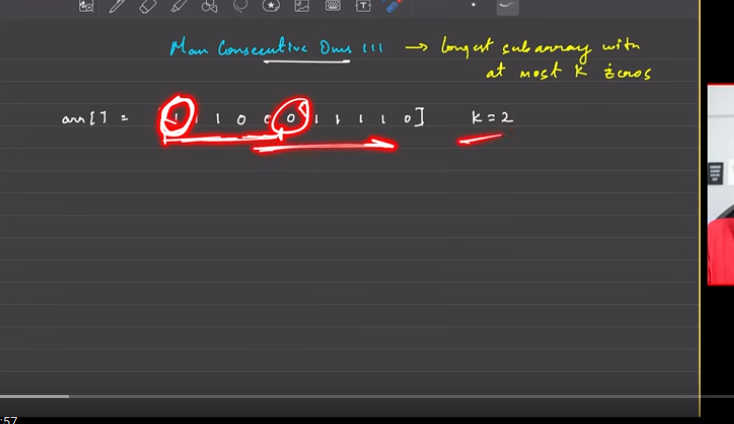 Max Consecutive Ones III → Longest subarray with
at most K zeros
arr[] = [1 1 1 0 0 0 1 1 1 1 0] K = 2
:57